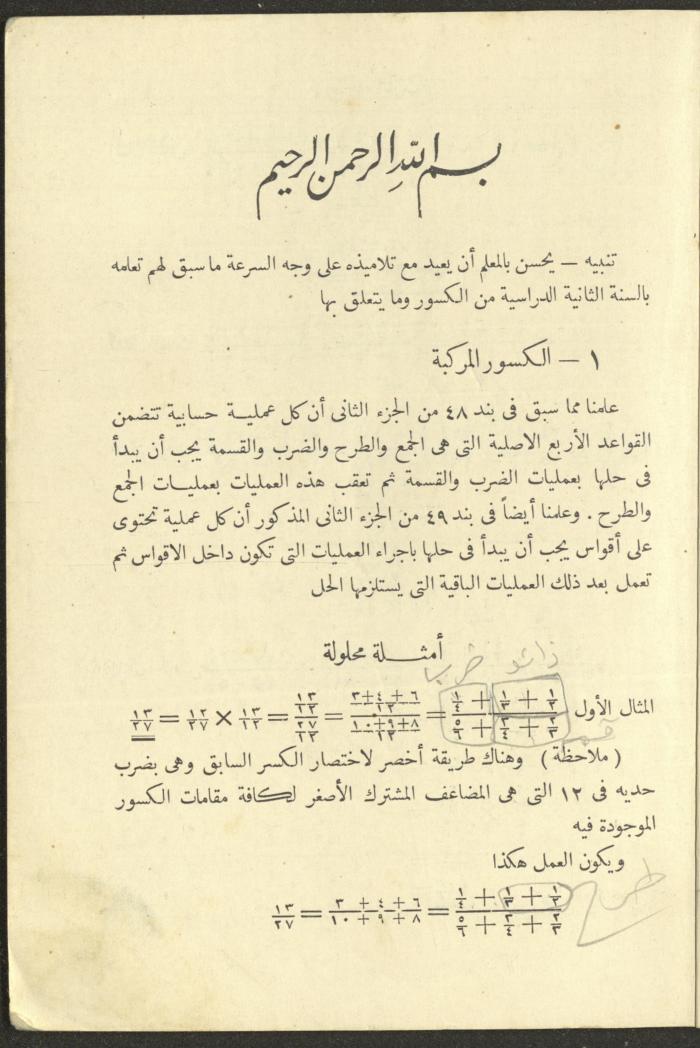 بسم الله الرحمن الرحيم
تنبيه — يحسن بالمعلم أن يعيد مع تلاميذه على وجه السرعة ما سبق لهم تعلمه
بالسنة الثانية الدراسية من الكسور وما يتعلق بها
١ — الكسور المركبة
علمنا مما سبق فى بند ٤٨ من الجزء الثانى أن كل عملية حسابية تتضمن
القواعد الأربع الاصلية التى هى الجمع والطرح والضرب والقسمة يجب أن يبدأ
فى حلها بعمليات الضرب والقسمة ثم تعقب هذه العمليات بعمليات الجمع
والطرح . وعلمنا أيضاً فى بند ٤٩ من الجزء الثانى المذكور أن كل عملية تحتوى
على أقواس يجب أن يبدأ فى حلها باجراء العمليات التى تكون داخل الاقواس ثم
تعمل بعد ذلك العمليات الباقية التى يستلزمها الحل
أمثلة محلولة
زائد ضرب
المثال الأول (١/٢ + ١/٣ + ١/٤) / (٢/٣ + ٣/٤ + ٥/٦) = ((٦ + ٤ + ٣)/١٢) / ((٨ + ٩ + ١٠)/١٢) = (١٣/١٢) / (٢٧/١٢) = ١٣/١٢ × ١٢/٢٧ = ١٣/٢٧
( ملاحظة ) وهناك طريقة أخصر لاختصار الكسر السابق وهى بضرب
حديه فى ١٢ التى هى المضاعف المشترك الأصغر لكافة مقامات الكسور
الموجودة فيه
ويكون العمل هكذا
طرح
(١/٢ + ١/٣ + ١/٤) / (٢/٣ + ٣/٤ + ٥/٦) = (٦ + ٤ + ٣) / (٨ + ٩ + ١٠) = ١٣/٢٧